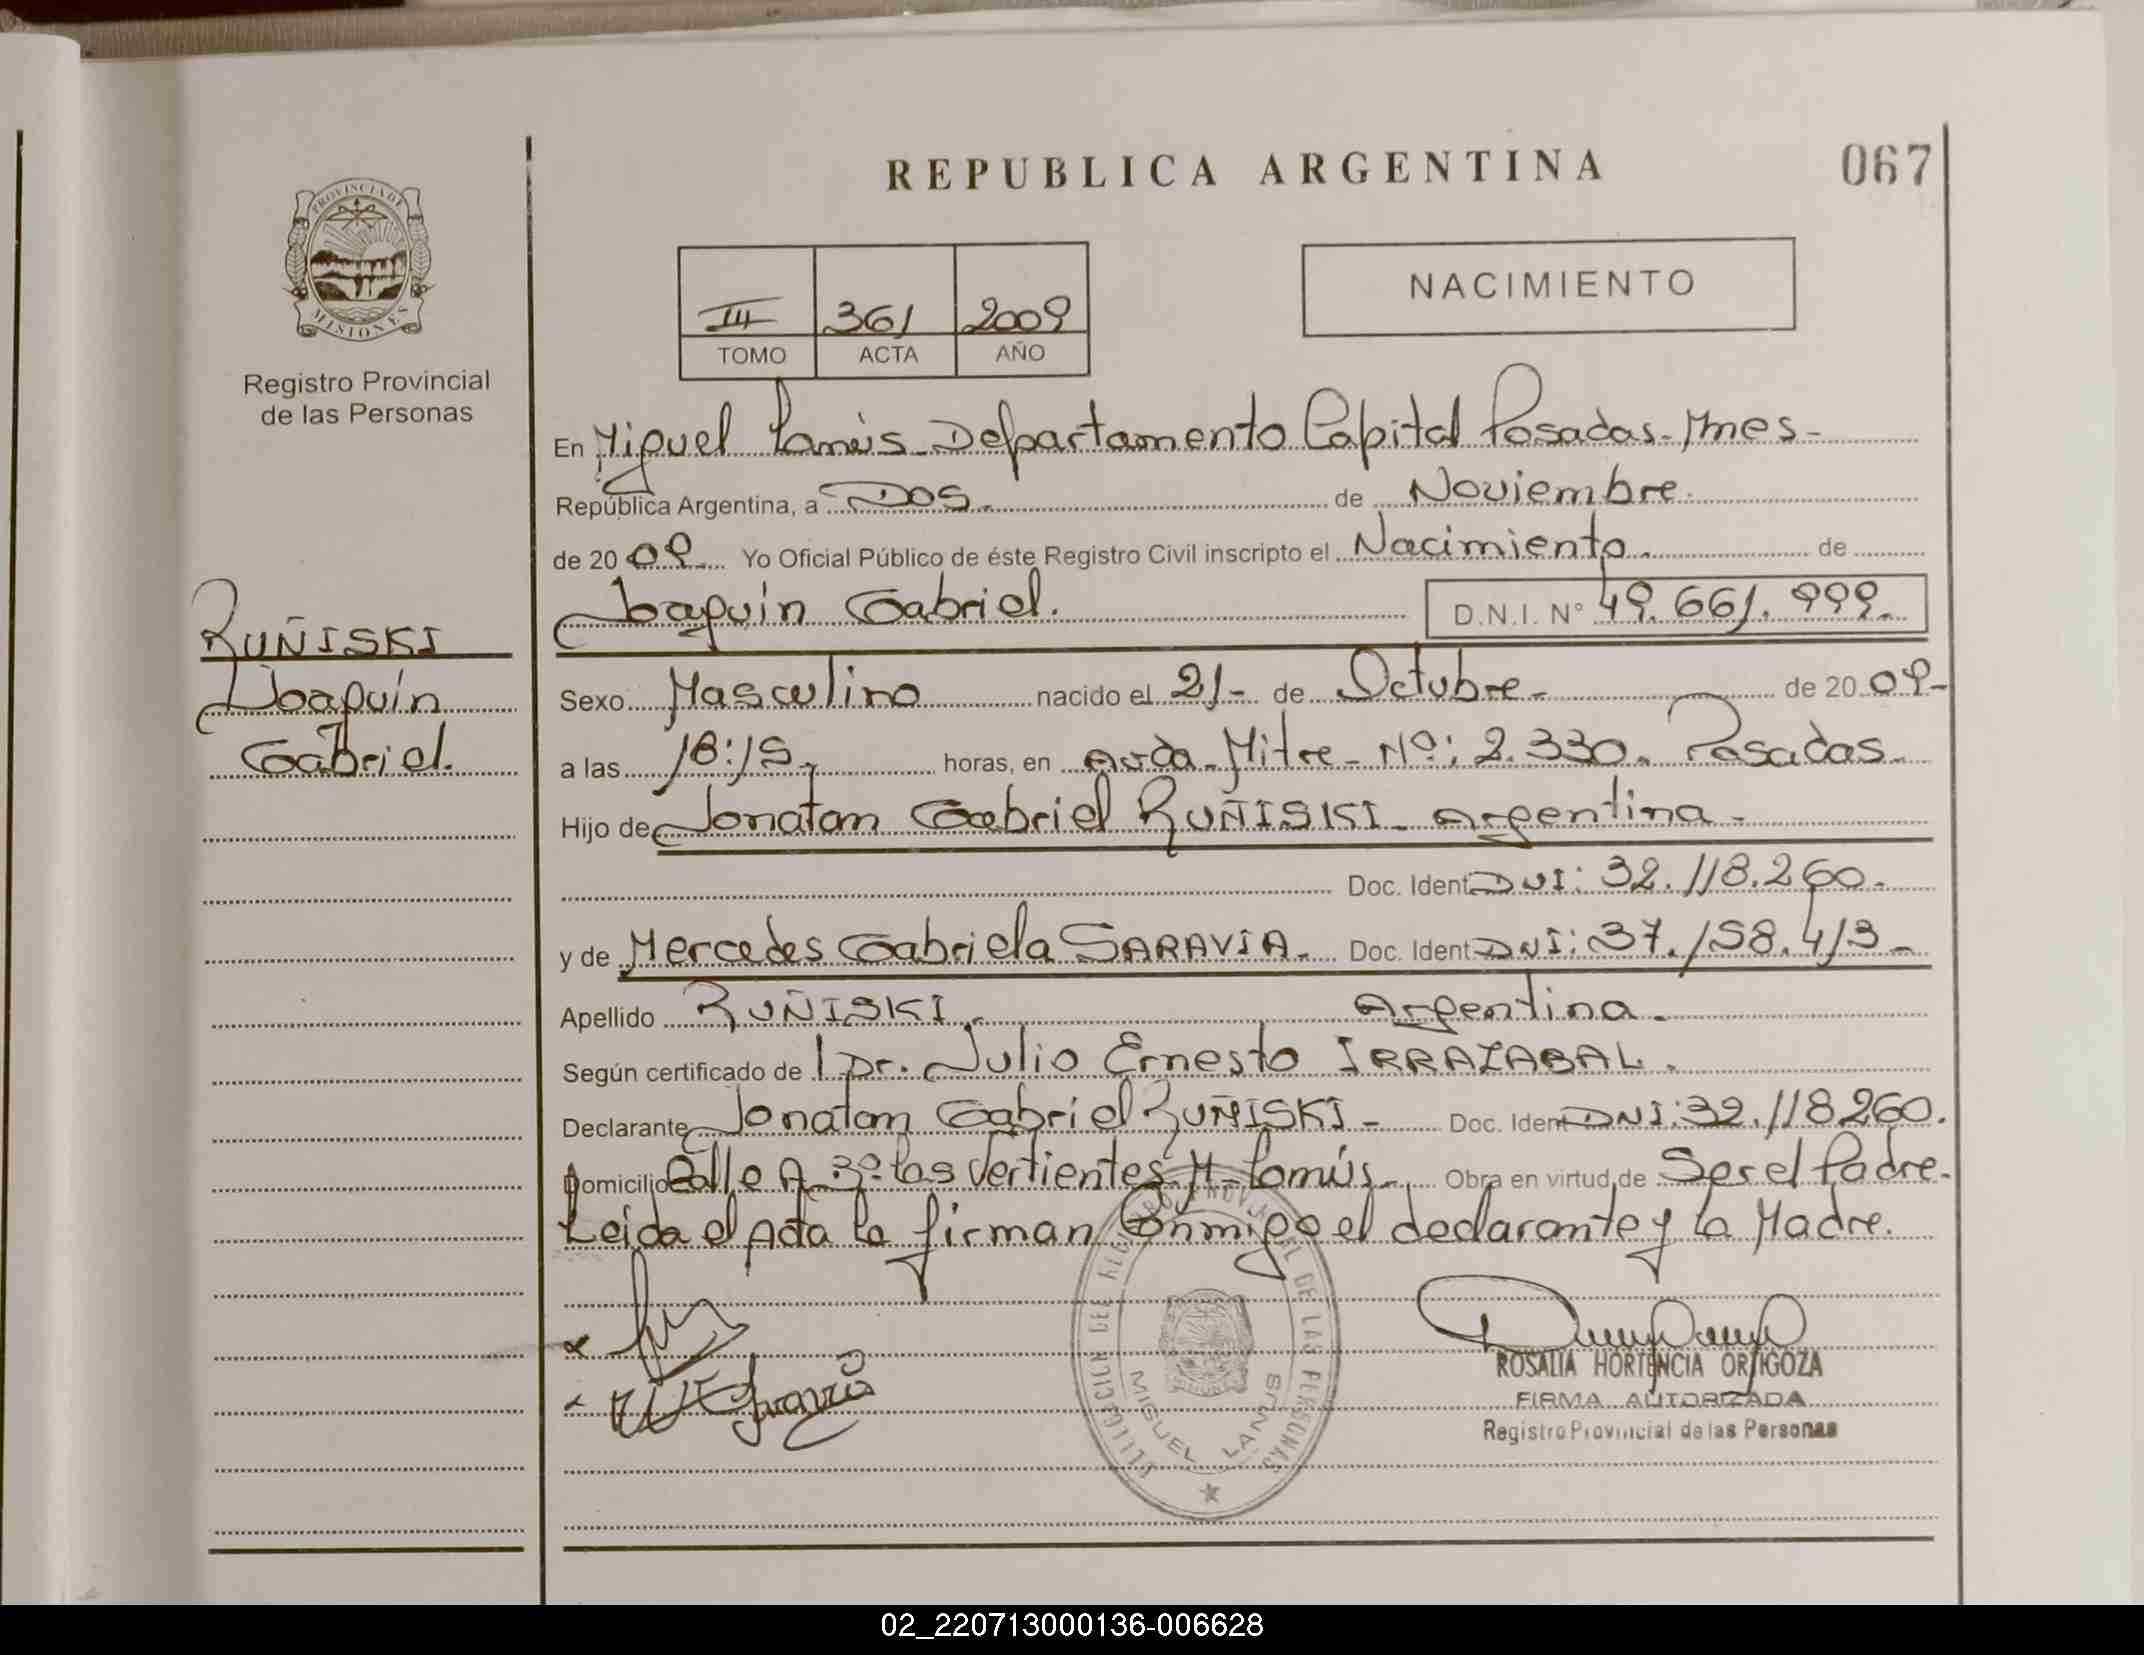 REPUBLICA ARGENTINA
067
PROVINCIA DE
MISIONES
Registro Provincial
de las Personas
III 361 2009
TOMO ACTA AÑO
NACIMIENTO
En Miguel Lanús - Departamento Capital Posadas - Mnes -
República Argentina, a Dos - de Noviembre
de 2009 Yo Oficial Público de éste Registro Civil inscripto el Nacimiento de
Joaquín Gabriel. D.N.I. Nº 49.661.999.
RUÑISKI
Joaquín
Gabriel.
Sexo Masculino nacido el 21- de Octubre - de 2009-
a las 18:15 horas, en Avda - Mitre - Nº: 2.330. Posadas.
Hijo de Jonatan Gabriel RUÑISKI - Argentina -
Doc. Ident DNI: 32.118.260.
y de Mercedes Gabriela SARAVIA. Doc. Ident DNI: 37.158.413-
Apellido RUÑISKI - Argentina.
Según certificado de l Dr. Julio Ernesto IRRAZABAL.
Declarante Jonatan Gabriel RUÑISKI - Doc. Iden DNI: 32.118260.
Domicilio Calle A 3º las Vertientes M. Lanús. Obra en virtud de Ser el Padre.
Leida el Acta la firman Conmigo el declarante y la Madre.
ROSALIA HORTENCIA ORTIGOZA
FIRMA AUTORIZADA
Registro Provincial de las Personas
PROVINCIAL DE LAS PERSONAS
MIGUEL LANUS
02_220713000136-006628